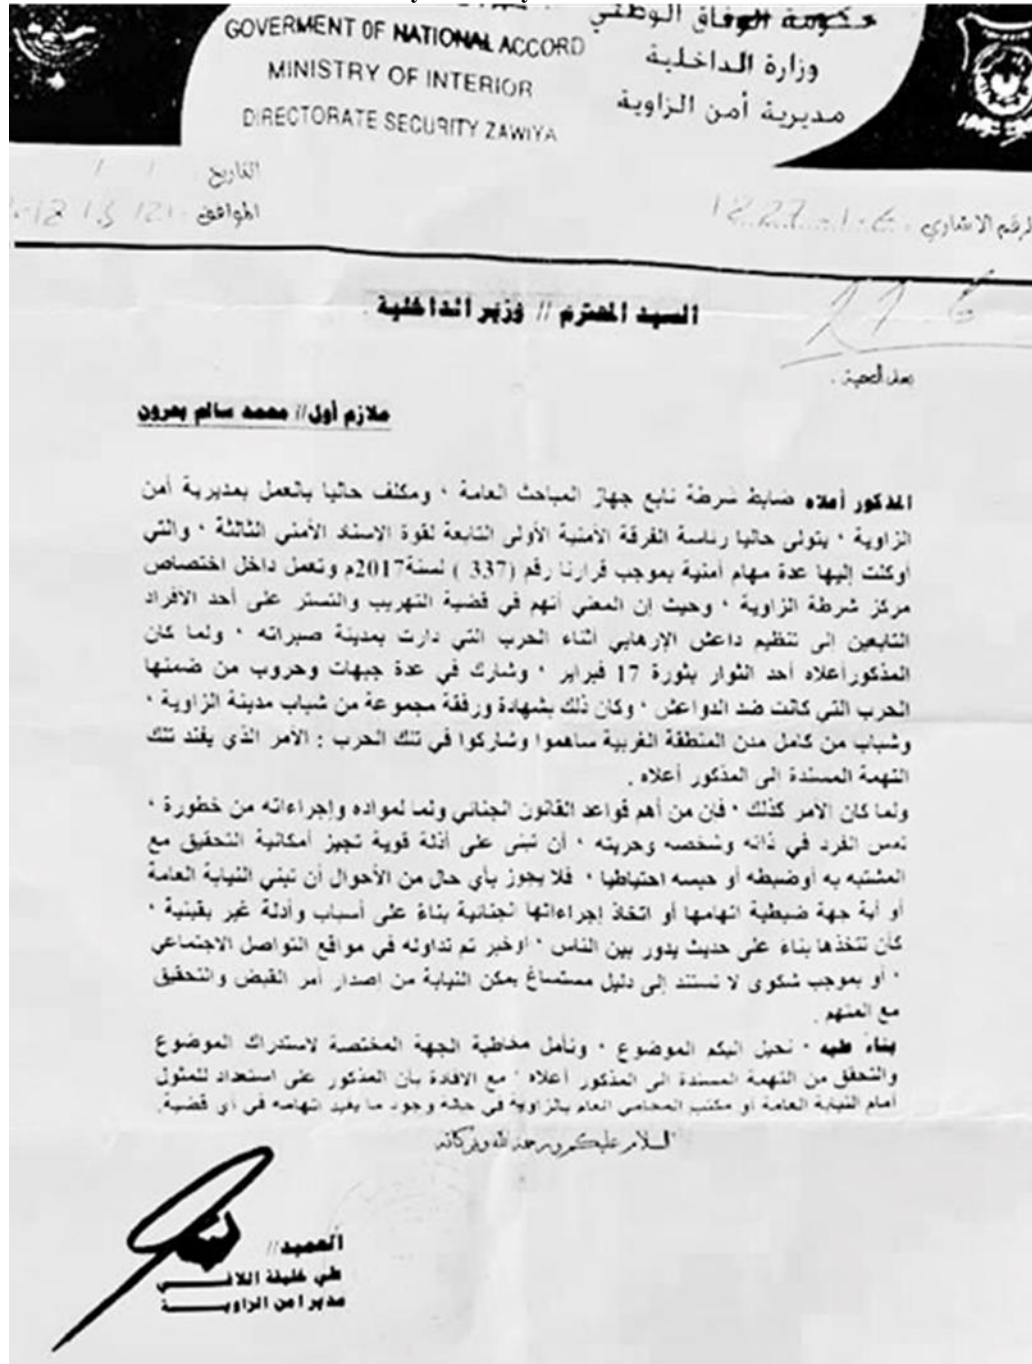 حكومة الوفاق الوطني
GOVERMENT OF NATIONAL ACCORD
وزارة الداخلية
MINISTRY OF INTERIOR
مديرية أمن الزاوية
DIRECTORATE SECURITY ZAWIYA
التاريخ / /
الموافق
الرقم الاشاري
السيد المحترم // وزير الداخلية .
بعد التحية .
ملازم أول// محمد سالم بحرون
المذكور أعلاه ضابط شرطة تابع جهاز المباحث العامة ، ومكلف حاليا بالعمل بمديرية أمن
الزاوية ، يتولى حاليا رئاسة الفرقة الأمنية الأولى التابعة لقوة الاسناد الأمني الثالثة ، والتي
أوكلت إليها عدة مهام أمنية بموجب قرارنا رقم (337 ) لسنة2017م وتعمل داخل اختصاص
مركز شرطة الزاوية ، وحيث إن المعني أتهم في قضية التهريب والتستر على أحد الافراد
التابعين إلى تنظيم داعش الإرهابي أثناء الحرب التي دارت بمدينة صبراته ، ولما كان
المذكورأعلاه أحد الثوار بثورة 17 فبراير ، وشارك في عدة جبهات وحروب من ضمنها
الحرب التي كانت ضد الدواعش ، وكان ذلك بشهادة ورفقة مجموعة من شباب مدينة الزاوية ،
وشباب من كامل مدن المنطقة الغربية ساهموا وشاركوا في تلك الحرب : الأمر الذي يفند تلك
التهمة المسندة الى المذكور أعلاه .
ولما كان الأمر كذلك ، فإن من أهم قواعد القانون الجنائي ولما لمواده وإجراءاته من خطورة ،
تمس الفرد في ذاته وشخصه وحريته ، أن تبنى على أدلة قوية تجيز أمكانية التحقيق مع
المشتبه به أوضبطه أو حبسه احتياطيا ، فلا يجوز بأي حال من الأحوال أن تبني النيابة العامة
أو أية جهة ضبطية اتهامها أو اتخاذ إجراءاتها الجنائية بناءً على أسباب وأدلة غير يقينية ،
كأن تتخذها بناء على حديث يدور بين الناس ، أوخبر تم تداوله في مواقع التواصل الاجتماعي
، أو بموجب شكوى لا تستند إلى دليل مستساغ يمكن النيابة من اصدار أمر القبض والتحقيق
مع المتهم .
بناءً عليه ، نحيل اليكم الموضوع ، ونأمل مخاطبة الجهة المختصة لاستدراك الموضوع
والتحقق من التهمة المسندة الى المذكور أعلاه ، مع الافادة بأن المذكور على استعداد للمثول
أمام النيابة العامة أو مكتب المحامي العام بالزاوية في حالة وجود ما يفيد اتهامه في أي قضية.
السلام عليكم ورحمة الله وبركاته
العميد//
علي خليفة اللافـــي
مدير امن الزاويـــــة